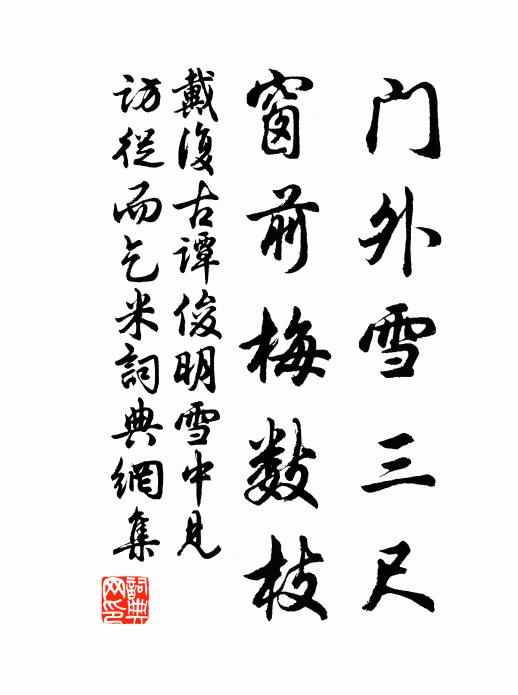 门外雪三尺
窗前梅数枝
戴復古谭俊明雪中見
访從而乞米詞典網集
詞典网印